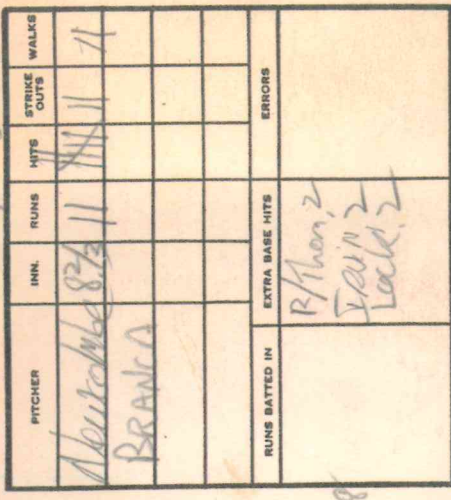 PITCHER INN. RUNS HITS STRIKE OUTS WALKS
Newcombe || || ||
BRANCA
RUNS BATTED IN EXTRA BASE HITS ERRORS
R/Thom, 2
Irvin 2
Lock. 2